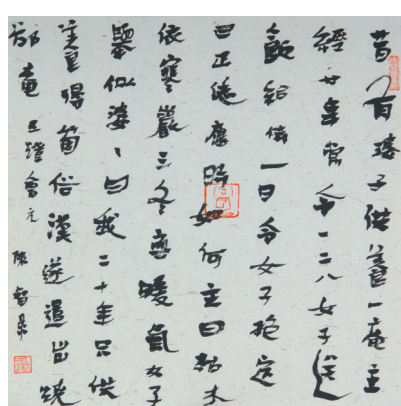 昔有婆子供養一庵主
經廿年常令一二八女子送
飯給侍一日令女子抱定
曰正恁麼時如何主曰枯木
依寒巖三冬無暖氣女子
舉似婆〻曰我二十年只供
養得箇俗漢遂遣出燒
卻庵 五燈會元
陳智